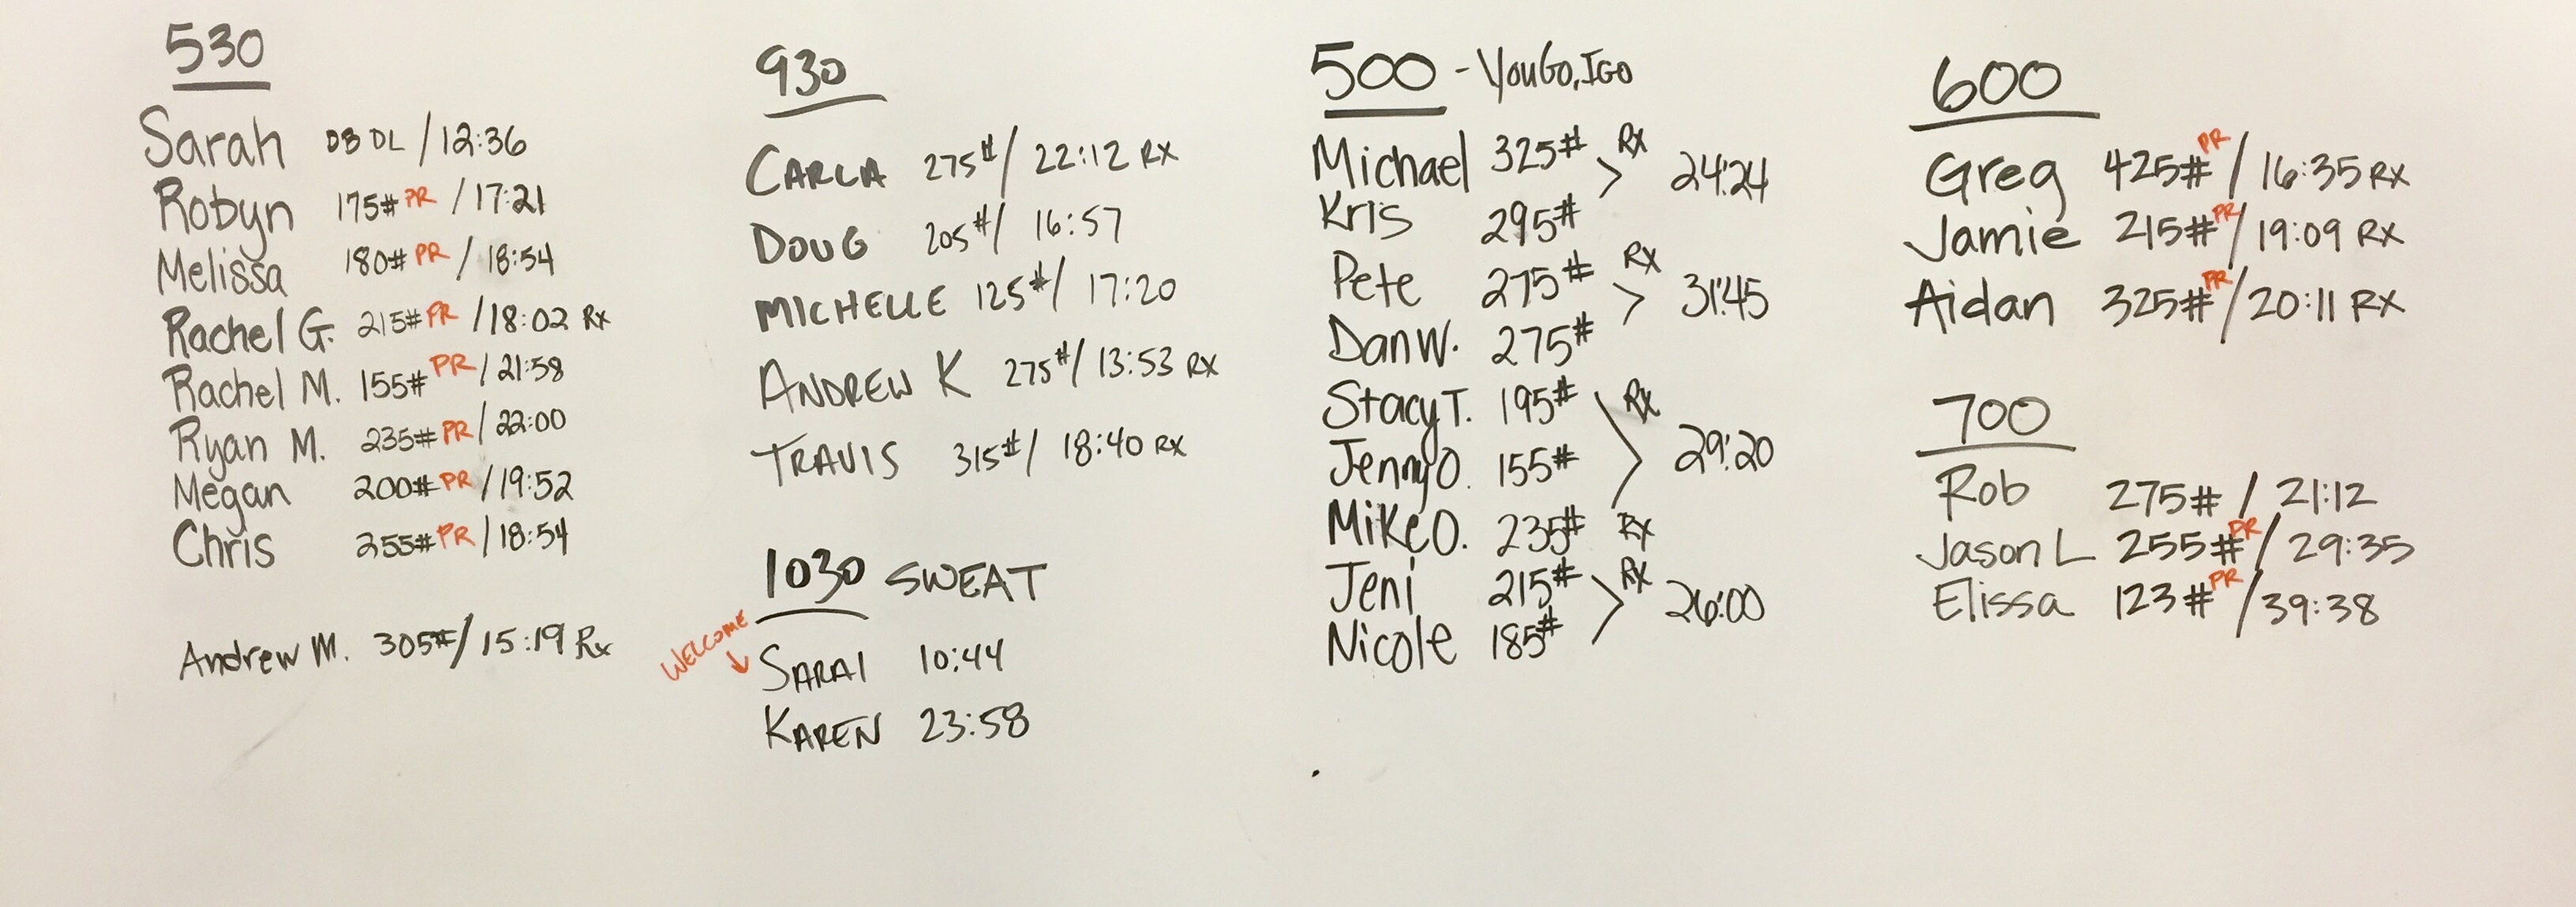 530
Sarah DB DL / 12:36
Robyn 175# PR / 17:21
Melissa 180# PR / 18:54
Rachel G. 215# PR / 18:02 Rx
Rachel M. 155# PR / 21:58
Ryan M. 235# PR / 22:00
Megan 200# PR / 19:52
Chris 255# PR / 18:54
Andrew M. 305# / 15:19 Rx
930
CARLA 275# / 22:12 RX
DOUG 205# / 16:57
MICHELLE 125# / 17:20
ANDREW K 275# / 13:53 RX
TRAVIS 315# / 18:40 RX
1030 SWEAT
WELCOME
SARAI 10:44
KAREN 23:58
500 - YouGo, IGO
Michael 325# > Rx 24:24
Kris 295#
Pete 275# > Rx 31:45
Dan W. 275#
Stacy T. 195# Rx
Jenny O. 155# > 29:20
Mike O. 235# Rx
Jeni 215# > Rx 26:00
Nicole 185#
600
Greg 425# PR / 16:35 RX
Jamie 215# PR / 19:09 RX
Aidan 325# PR / 20:11 RX
700
Rob 275# / 21:12
Jason L 255# PR / 29:35
Elissa 123# PR / 39:38